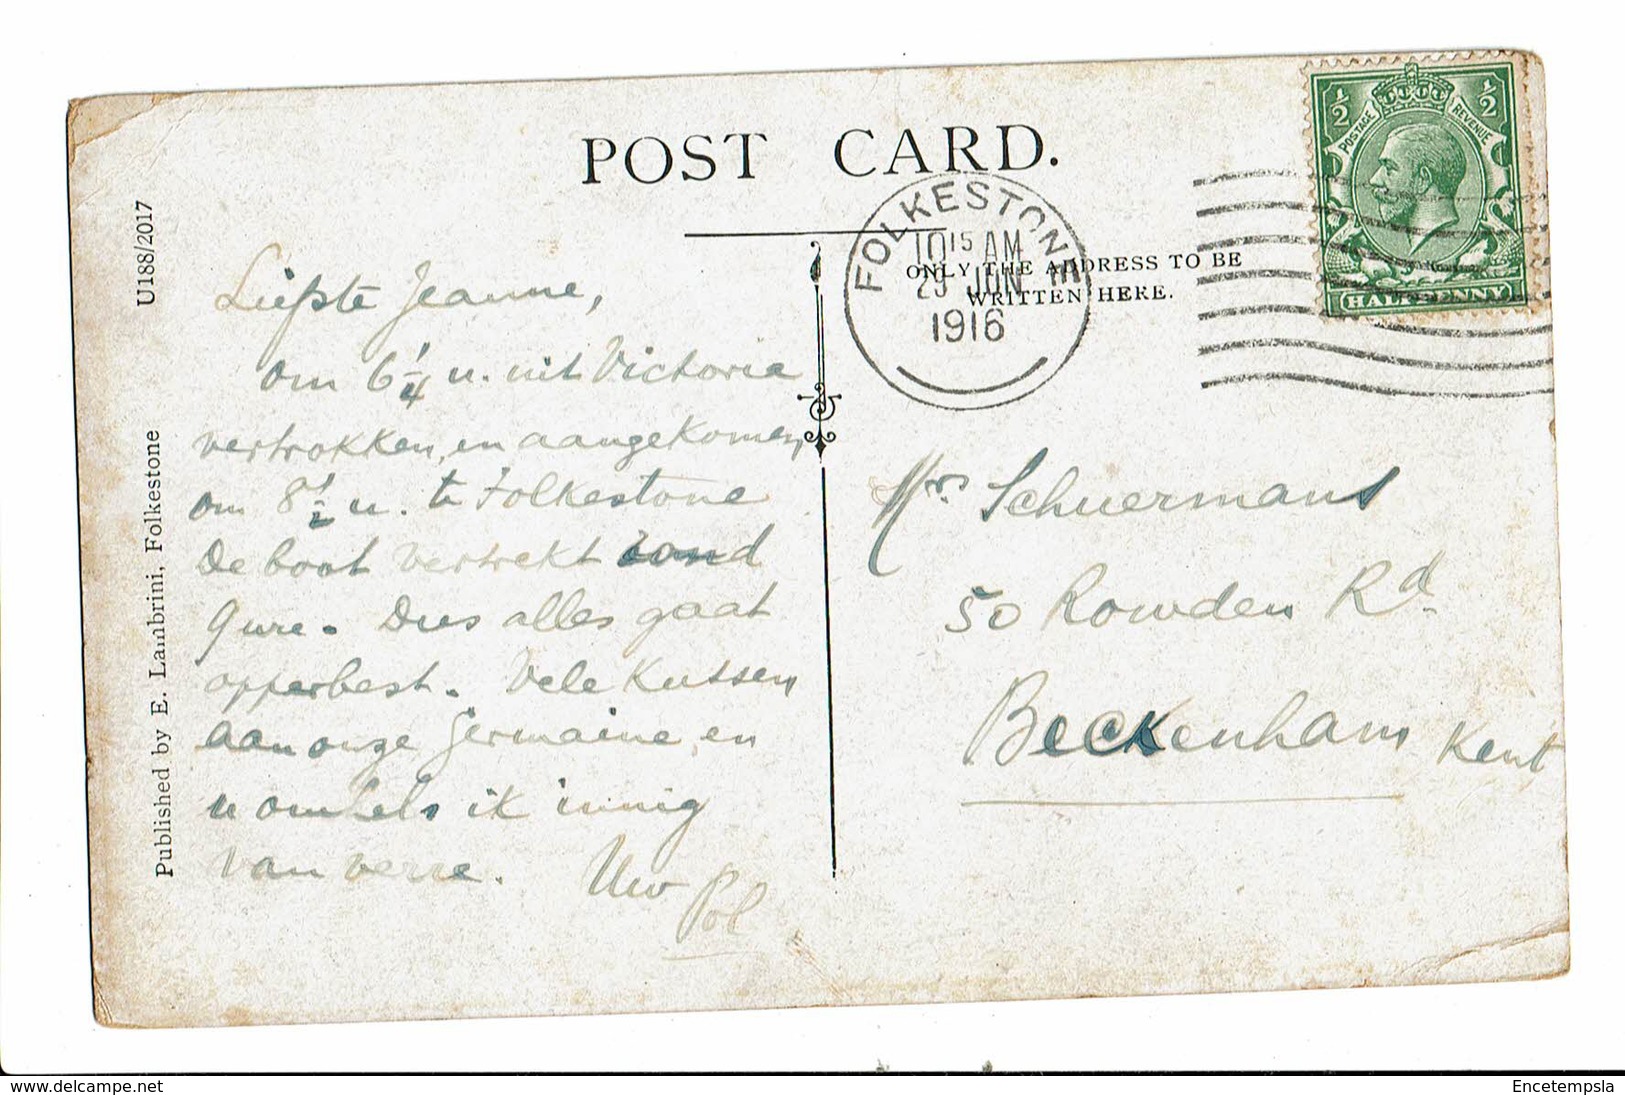 POST CARD.
U188/2017
Published by E. Lambrini, Folkestone
FOLKESTONE
10 15 AM
29 JUN
1916
ONLY THE ADDRESS TO BE
WRITTEN HERE.
1/2 POSTAGE REVENUE 1/2
HALFPENNY
Liefste Jeanne,
om 6 1/4 u. uit Victoria
vertrokken, en aangekomen
om 8 1/2 u. te Folkestone
De boot vertrekt rond
9 ure. Dus alles gaat
opperbest. Vele Kussen
aan onze Germaine, en
u omhels ik innig
van verre. Uw Pol
Mrs Schuermans
50 Rowden Rd
Beckenham Kent
delcampe.net
Encetempsla